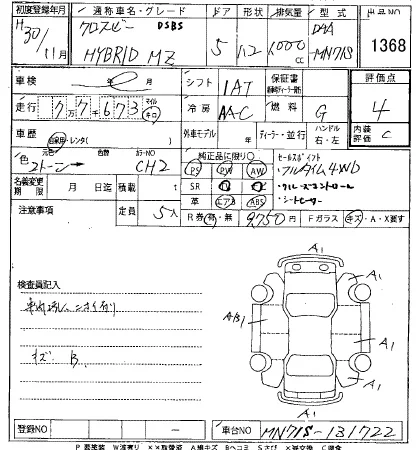 初度登録年月 通称車名・グレード ドア 形状 排気量 型式 出品NO
H30/11月 クロスビー DSBS HYBRID MZ 5 1000cc DAA MN71S 1368
車検 年 シフト IAT 保証書 評価点
走行 7万7千673 マイル キロ 冷房 AAC 燃料 G 4
車歴 自家用・レンタ( ) 外車モデル 年 ディーラー・並行 ハンドル 右・左 内装評価 C
色 元色 2トーン 色替 カラーNO CH2 純正品に限り○ セールスポイント
PS PW AW フルタイム4WD
名義変更期限 月 日迄 積載 t SR クルーズコントロール
革 エアB ABS シートヒーター
注意事項 定員 5人 R券 有・無 9,750円 Fガラス キズ・A・X要す
検査員記入
車内汚れ こげ有り
キズ B
A1
A1
A1
AB1
A1
A1
A1
登録NO 車台NO MN71S-131722
P要塗装 W波有り XX取替済 A線キズ Bヘコミ Sさび X要交換 C腐食